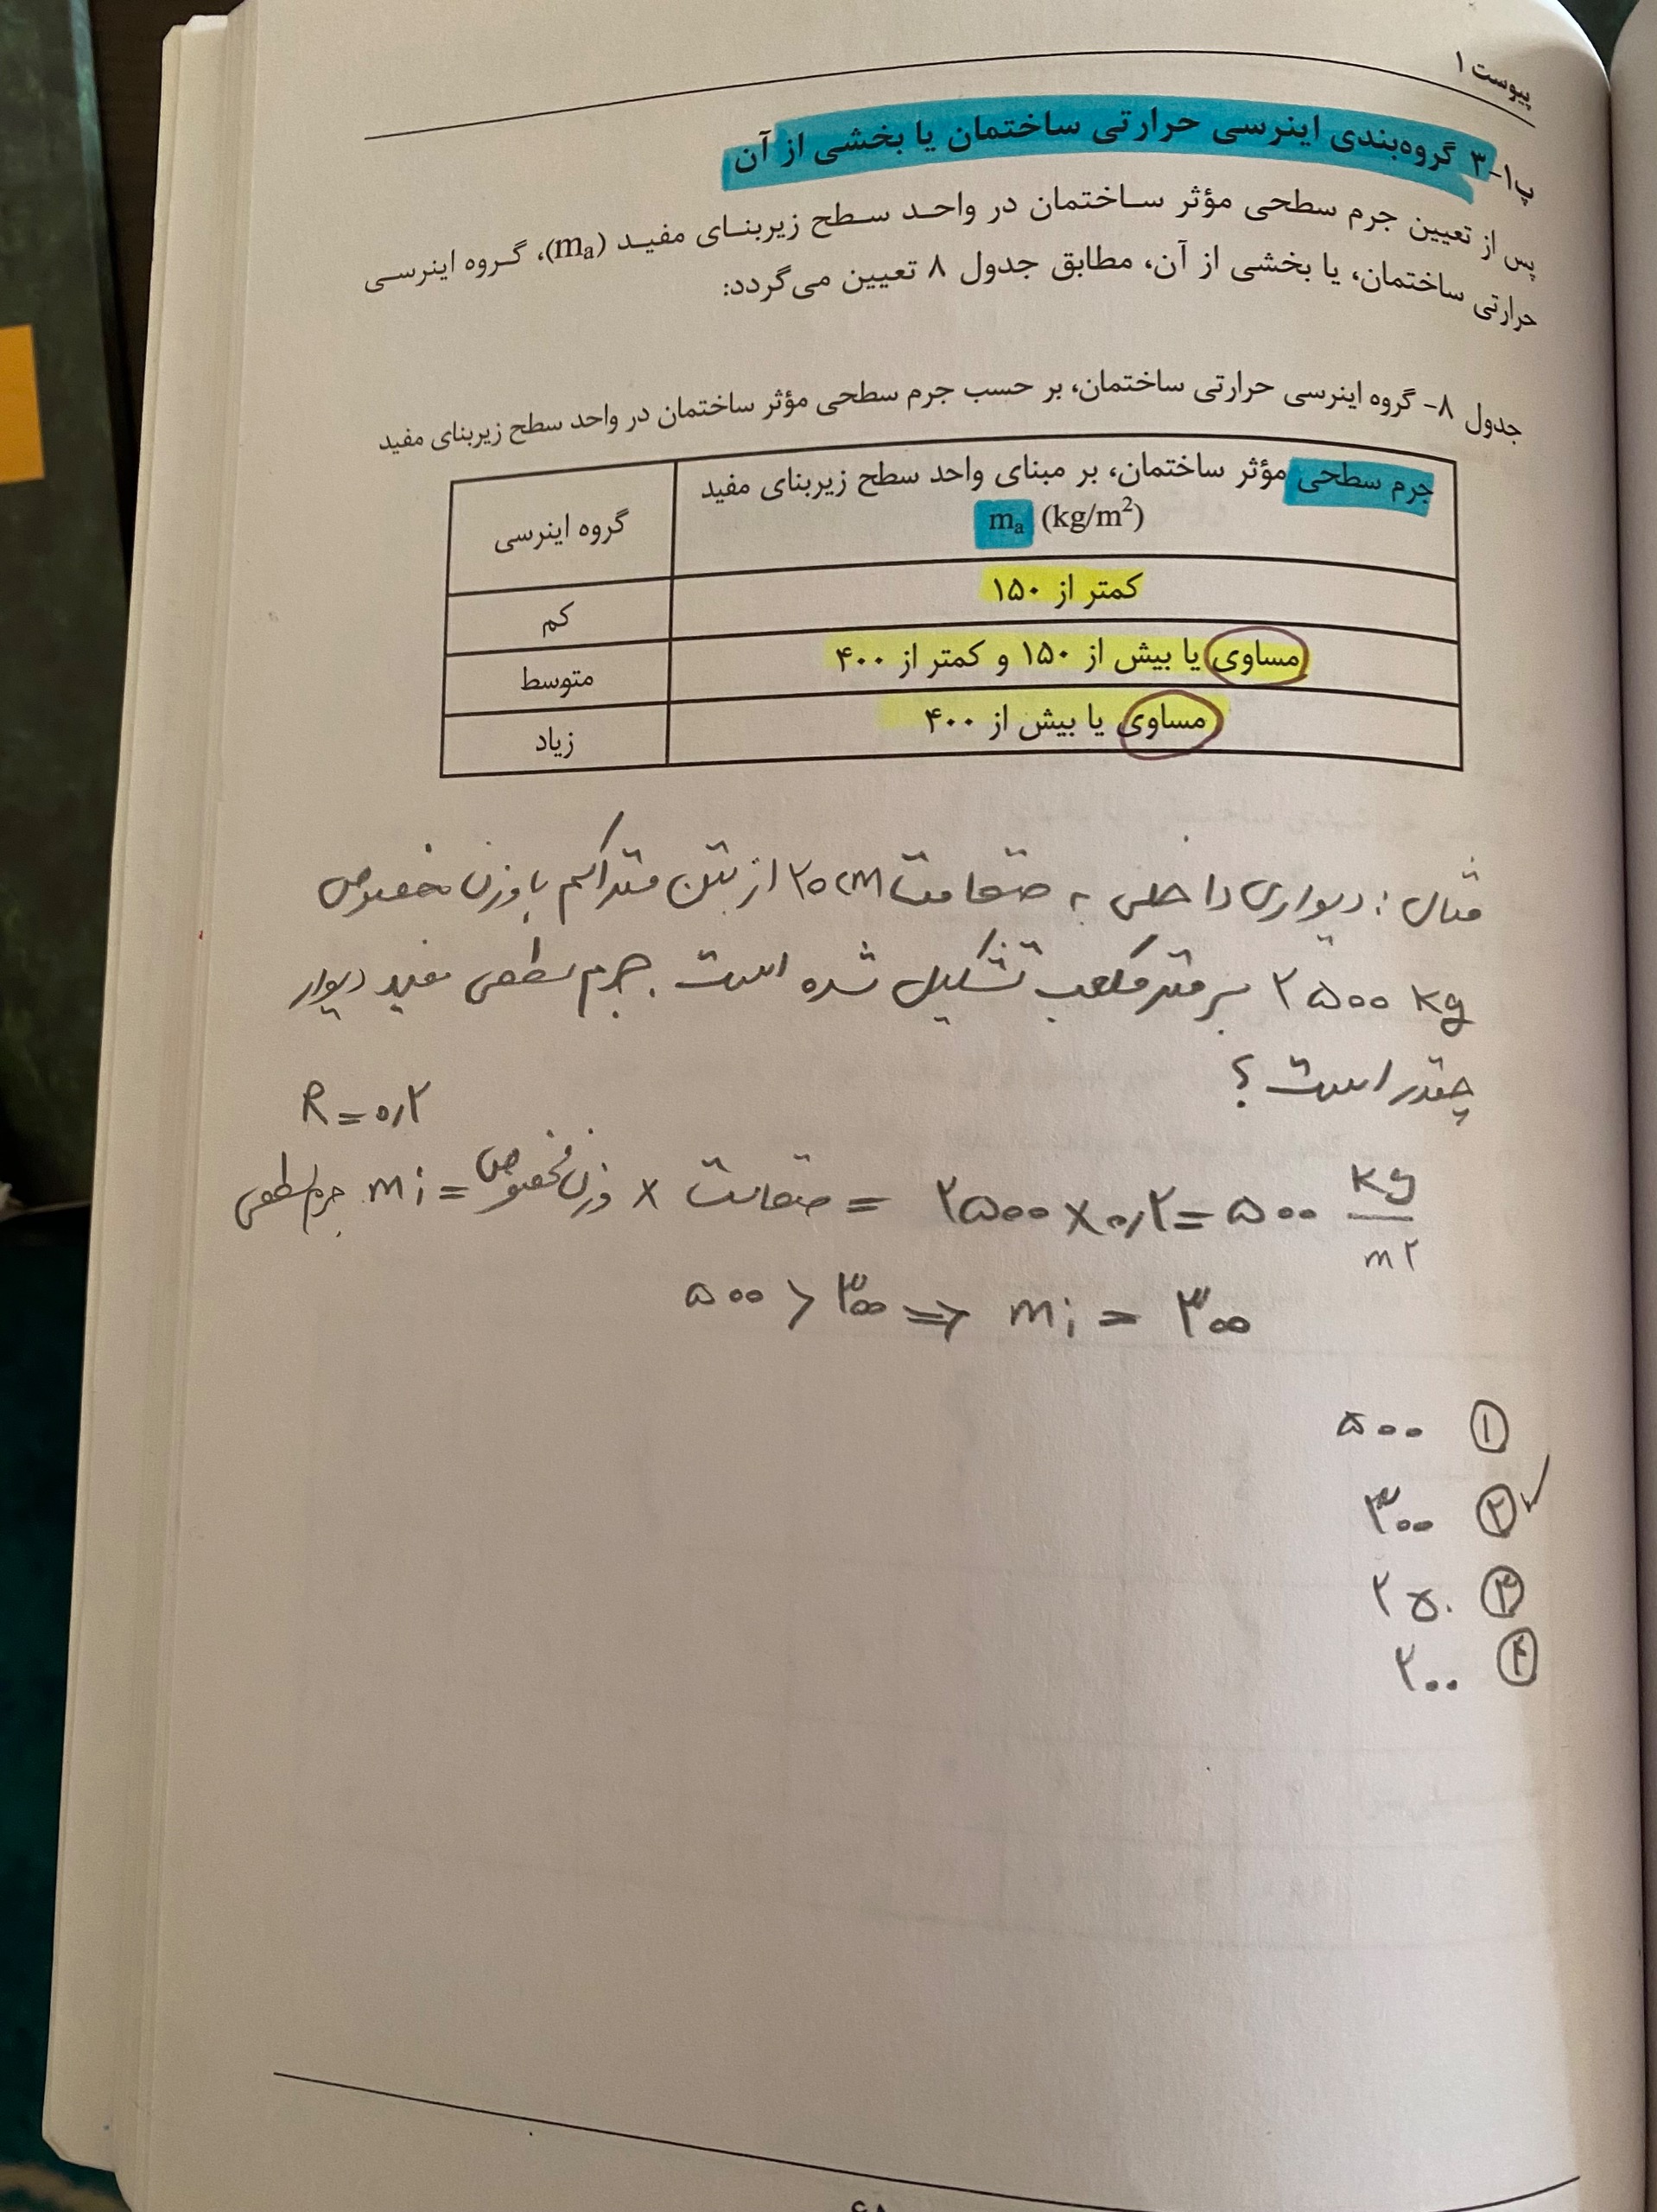 پیوست ۱
پ۱-۳ گروه‌بندی اینرسی حرارتی ساختمان یا بخشی از آن
پس از تعیین جرم سطحی مؤثر ساختمان در واحد سطح زیربنای مفید (ma)، گروه اینرسی
حرارتی ساختمان، یا بخشی از آن، مطابق جدول ۸ تعیین می‌گردد:
جدول ۸- گروه اینرسی حرارتی ساختمان، بر حسب جرم سطحی مؤثر ساختمان در واحد سطح زیربنای مفید
جرم سطحی مؤثر ساختمان، بر مبنای واحد سطح زیربنای مفید
ma (kg/m²)
گروه اینرسی
کمتر از ۱۵۰
کم
مساوی یا بیش از ۱۵۰ و کمتر از ۴۰۰
متوسط
مساوی یا بیش از ۴۰۰
زیاد
مثال: دیواری داخلی به ضخامت ۲۰cm از بتن متراکم با وزن مخصوص
۲۵۰۰ kg بر متر مکعب تشکیل شده است. جرم سطحی مفید دیوار
چقدر است؟
R = ۰٫۲
جرم سطحی mi = وزن مخصوص × ضخامت = ۲۵۰۰ × ۰٫۲ = ۵۰۰ kg/m۲
۵۰۰ > ۳۰۰ ⇒ mi = ۳۰۰
۱ ۵۰۰
۲ ۳۰۰ ✓
۳ ۲۵۰
۴ ۲۰۰